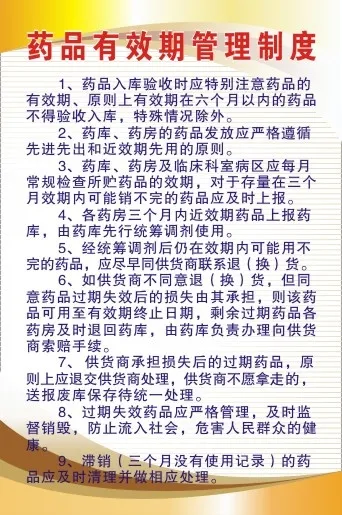 药品有效期管理制度
1、药品入库验收时应特别注意药品的
有效期、原则上有效期在六个月以内的药品
不得验收入库，特殊情况除外。
2、药库、药房的药品发放应严格遵循
先进先出和近效期先用的原则。
3、药库、药房及临床科室病区应每月
常规检查所贮药品的效期，对于存量在三个
月效期内可能销不完的药品应及时上报。
4、各药房三个月内近效期药品上报药
库，由药库先行统筹调剂使用。
5、经统筹调剂后仍在效期内可能用不
完的药品，应尽早同供货商联系退（换）货。
6、如供货商不同意退（换）货，但同
意药品过期失效后的损失由其承担，则该药
品可用至有效期终止日期，剩余过期药品各
药房及时退回药库，由药库负责办理向供货
商索赔手续。
7、 供货商承担损失后的过期药品，原
则上应退交供货商处理，供货商不愿拿走的，
送报废库保存待统一处理。
8、过期失效药品应严格管理，及时监
督销毁，防止流入社会，危害人民群众的健
康。
9、滞销（三个月没有使用记录）的药
品应及时清理并做相应处理。